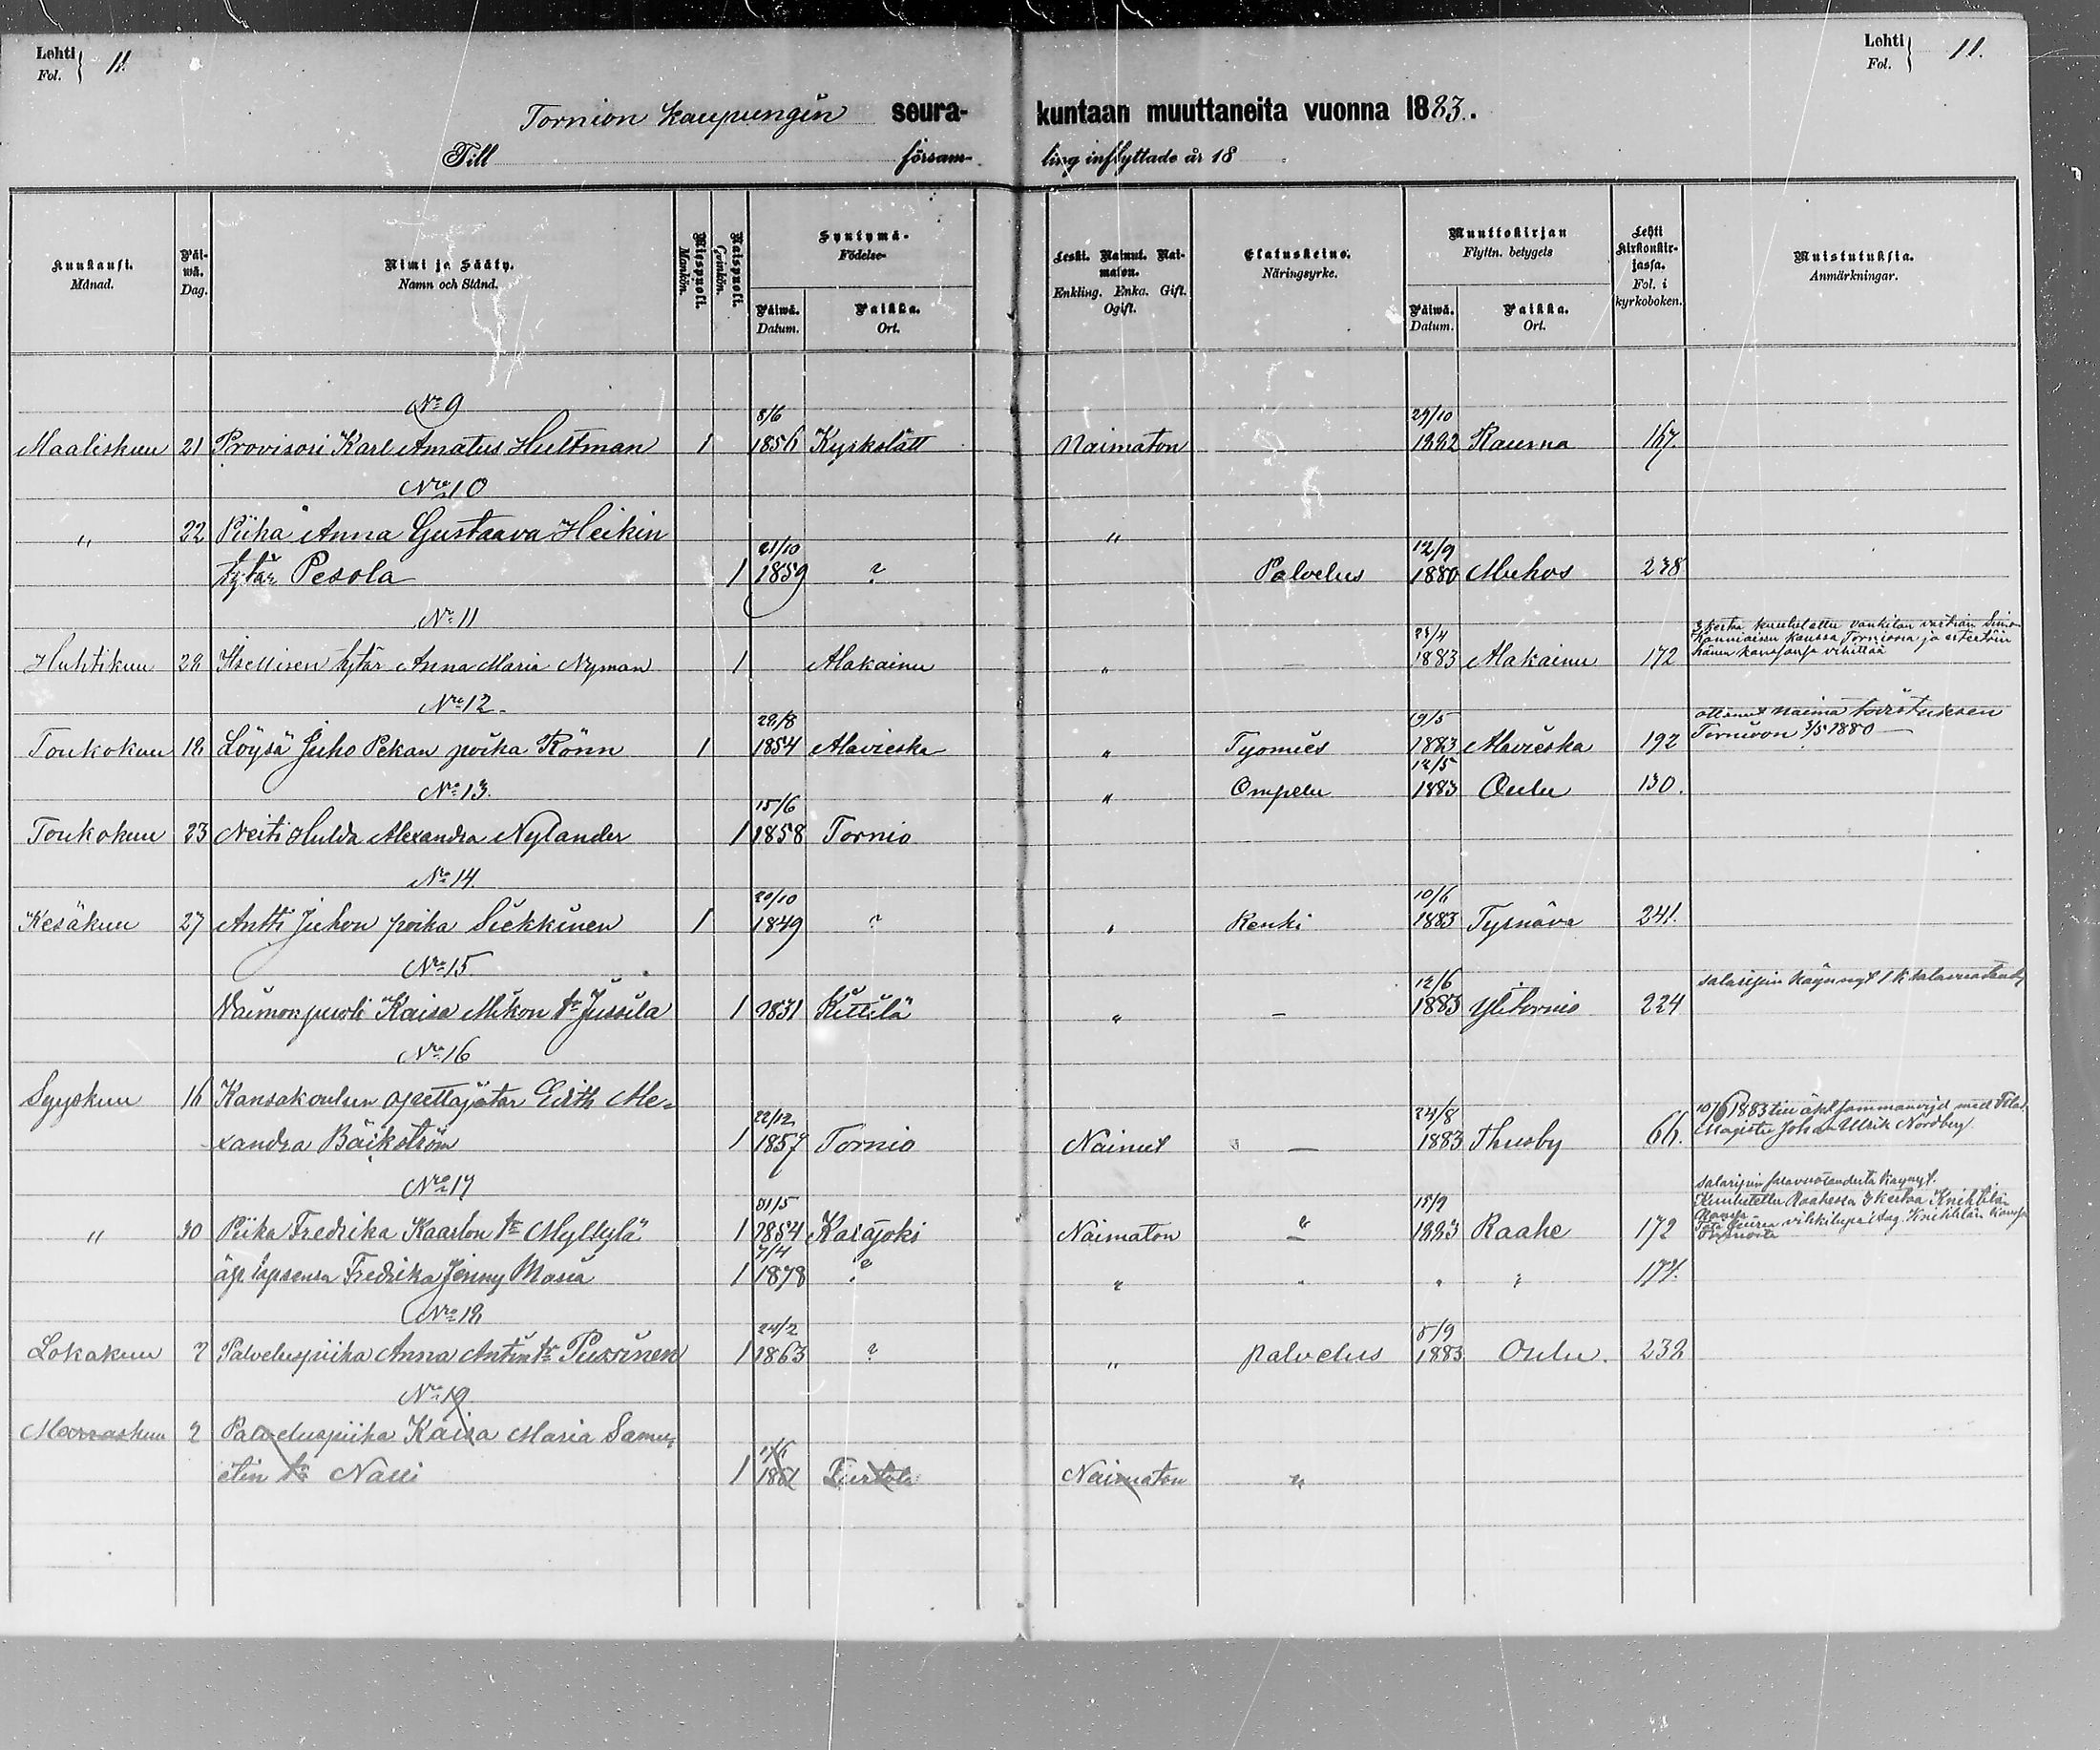 Lehti Fol. 11.
Lehti Fol. 11.
Tornion kaupungin seura- kuntaan muuttaneita vuonna 1883.
Till försam- ling inflyttade år 18
Kuukausi. Månad.
Päi-wä. Dag.
Nimi ja Sääty. Namn och Stånd.
Miespuoli. Mankön.
Naispuoli. Qvinkön.
Syntymä- Födelse-
Päiwä. Datum.
Paikka. Ort.
Leski. Nainut. Nai-maton. Enkling. Enka. Gift. Ogift.
Elatuskeino. Näringsyrke.
Muuttokirjan Flyttn. betygets
Päiwä. Datum.
Paikka. Ort.
Lehti Kirkonkir-jassa. Fol. i kyrkoboken.
Muistutuksia. Anmärkningar.
No 9
8/6 29/10
Maaliskuu 21 Provisori Karl Amatus Hultman 1 1856 Kyrkslätt Naimaton 1882 Rauma 167.
No 10
" 22 Piika Anna Gustaava Heikin "
21/10 12/9
tytär Pesola 1 1859 ? Palvelus 1880 Muhos 238
No 11
3 kertaa kuulutettu vankilan vartian
kanssa Torniossa ja
Huhtikuu 28 Itsellisen tytär Anna Maria Nyman 1 Alakainu " — 1883 Alakainu 172 hänen kanssansa vihittää
No 12.
28/8 19/5 ottanut naima todistuksen
Toukokuu 18 Löysä Juho Pekan poika Rönn 1 1854 Alavieska " Työmies 1883 Alavieska 192 Tornioon 3/5 1880 —
No 13. 12/5
15/6 " Ompelu 1883 Oulu 130.
Toukokuu 23 Neiti Hulda Alexandra Nylander 1 1858 Tornio
No 14.
20/10 10/6
Kesäkuu 27 Antti Juhon poika Siekkinen 1 1849 ? " Renki 1883 Tyrnävä 241.
No 15
12/6 salaripin käynnyt
Vaimonpuoli Kaisa Mikon tr Jussila 1 1831 Kittilä " — 1883 Ylitornio 224
No 16
Syyskuu 16 Kansakoulun opettajatar Edith Ale-
22/12 24/8 10/6 1883 till äkt. sammanvigd med
xandra Bäckström 1 1857 Tornio Nainut — 1883 Thusby 66. Magister Johan Ulrik Nordberg
No 17
31/5 15/9 salaripin
Kuulutettu Raahessa 3 kertaa Knihtilän
" 30 Piika Fredrika Kaarlon tr Myllylä 1 1854 Kalajoki Naimaton " 1883 Raahe 172 kanssa
7/4
äp. lapsensa Fredrika Jenny Maria 1 1878 ? " " " " 174.
No 18
24/2 5/9
Lokakuu 2 Palveluspiika Anna Antin tr Pussinen 1 1863 ? " palvelus 1883 Oulu. 238
No 19
Marraskuu 2 Palveluspiika Kaisa Maria Samu-
elin tr Nalli 1 1861 Turtola Naimaton "